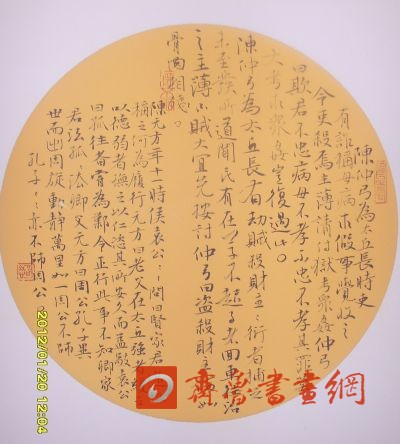 陳仲弓為太丘長時吏
有詐稱母病求假事覺收之
令吏殺焉主薄請付獄考衆姦仲弓
曰欺君不忠病母不孝不忠不孝其罪
大考求衆姦豈復過此
陳仲弓為太丘長有劫賊殺財主主者捕之
未至發所道聞民有在草不起子者回車往治
之主薄曰賊大宜先按討仲弓曰盗殺財主
骨肉相殘
陳元方年十一時候袁公〻問曰賢家君
稱之何為履行元方曰老父在太丘強者
以德弱者撫之以仁恣其所安久而益敬袁公
曰孤往者嘗為鄴令正行此事不知卿家
君法孤孤法卿父元方曰周公孔子異
世而出周旋動静萬里如一周公不師
孔子〻亦不師周公
2012/01/20 12:04
齊魯書畫網